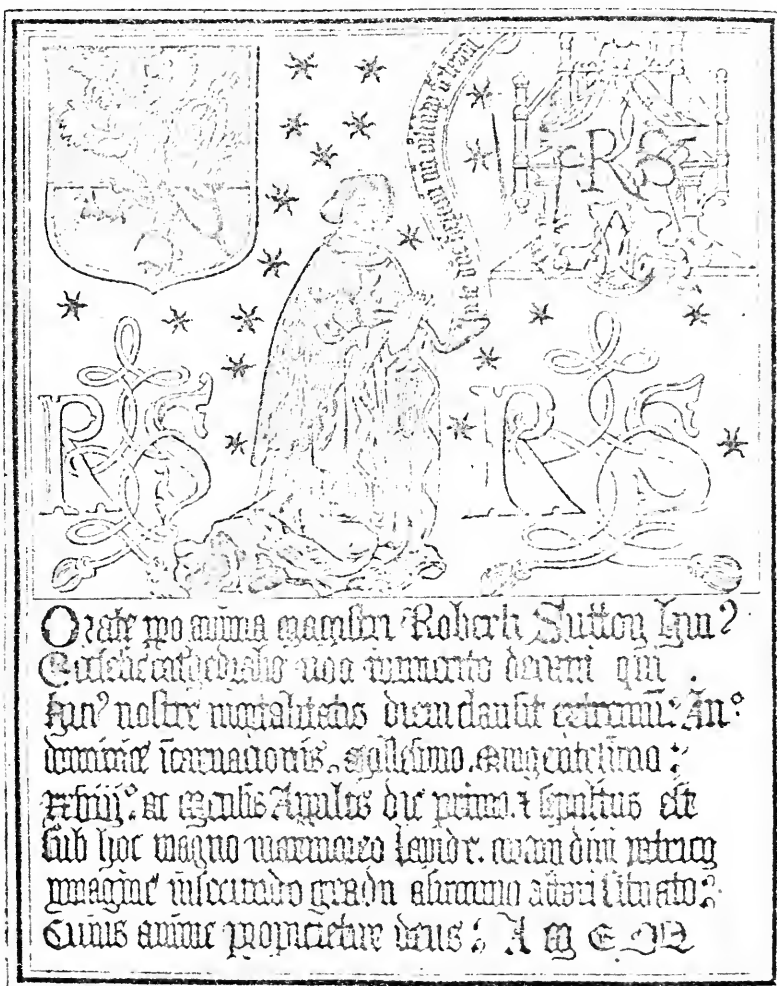 In te dñe speraui
RS
RS RS
Orate pro anima magistri Roberti Sutton huiꝰ
Ecclesie cathedralis non immerito decani qui
huiꝰ nostre mortalitatis diem clausit extremū: Anº
dominice īcarnationis. Millesimo. Quīgentesimo:
xxbiijº. ac mensis Aprilis die primo. ⁊ sepultus est
sub hoc magno marmoreo lapide. coram diui patricij
ymagine in secundo gradu a summo altari situato:
Cuius anime propicietur deus: AMEN